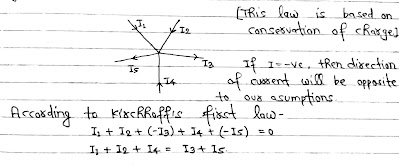 [This law is based on
conservation of charge]
I1
I2
I3
I5
I4
If I=-ve, then direction
of cusent will be opposite
to our asumptions.
According to Kirchhoff's first law-
I1 + I2 + (-I3) + I4 + (-I5) = 0
I1 + I2 + I4 = I3 + I5.